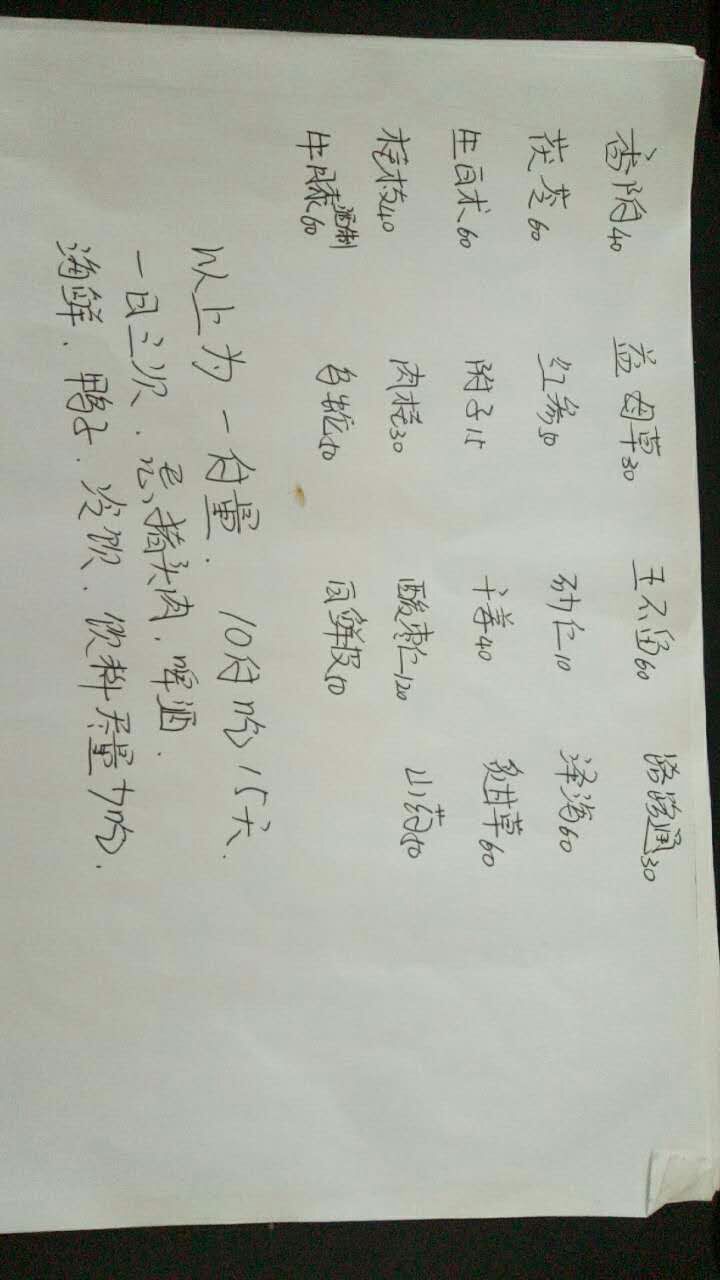 益母草30 王不留60 路路通30
茯苓60 红参50 砂仁10 泽泻60
生白术60 附子15 干姜40 炙甘草60
桂枝40 肉桂30 酸枣仁120 山药50
牛膝酒制60 白蛇50 白鲜皮50
以上为一付量. 10付吃15天.
一日三次. 忌猪头肉. 啤酒.
海鲜. 鸭子. 冷饮. 饮料尽量少吃.